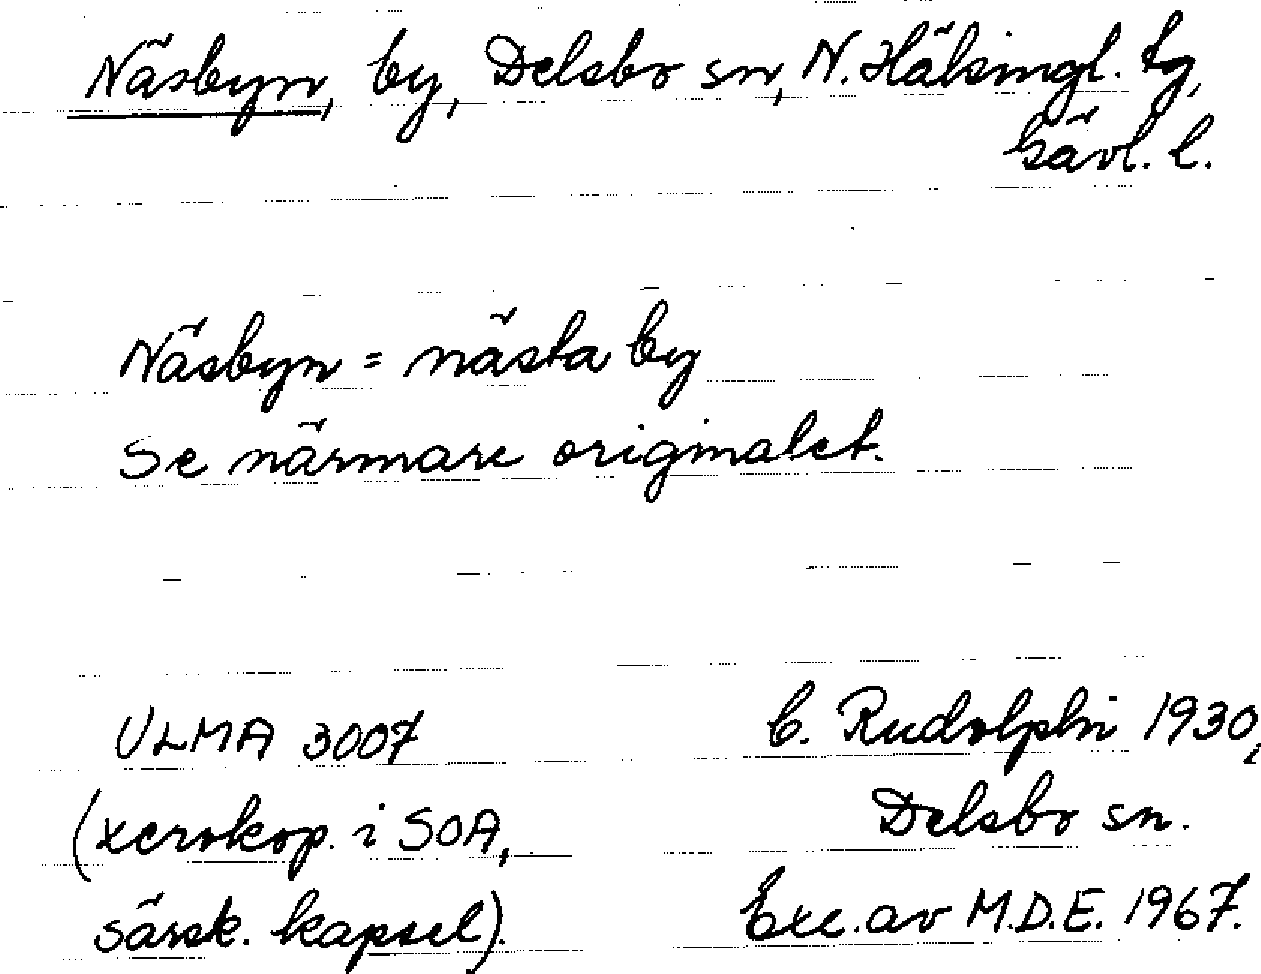 Näsbyn, by, Delsbo sn, N. Hälsingl. tg,
Gävl. l.
Näsbyn = nästa by
Se närmare originalet.
ULMA 3007
(xerokop. i SOA,
särsk. kapsel).
C. Rudolphi 1930,
Delsbo sn.
Exc. av M.D.E. 1967.